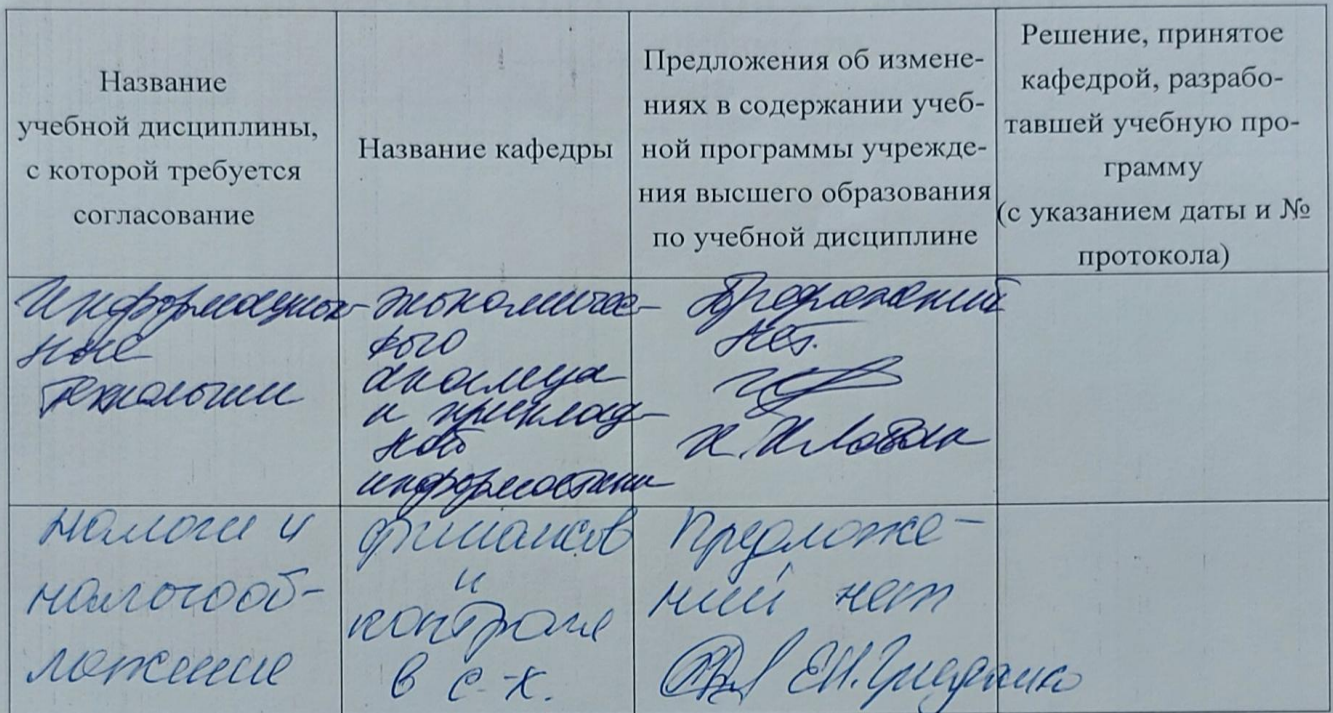 Название
учебной дисциплины,
с которой требуется
согласование
Название кафедры
Предложения об измене-
ниях в содержании учеб-
ной программы учрежде-
ния высшего образования
по учебной дисциплине
Решение, принятое
кафедрой, разрабо-
тавшей учебную про-
грамму
(с указанием даты и №
протокола)
Информацион-
ные
технологии
экономичес-
кого
анализа
и приклад-
ной
информатики
Предложений
нет.
налоги и
налогооб-
ложение
финансов
и
контроля
в с.-х.
Предложе-
ний нет